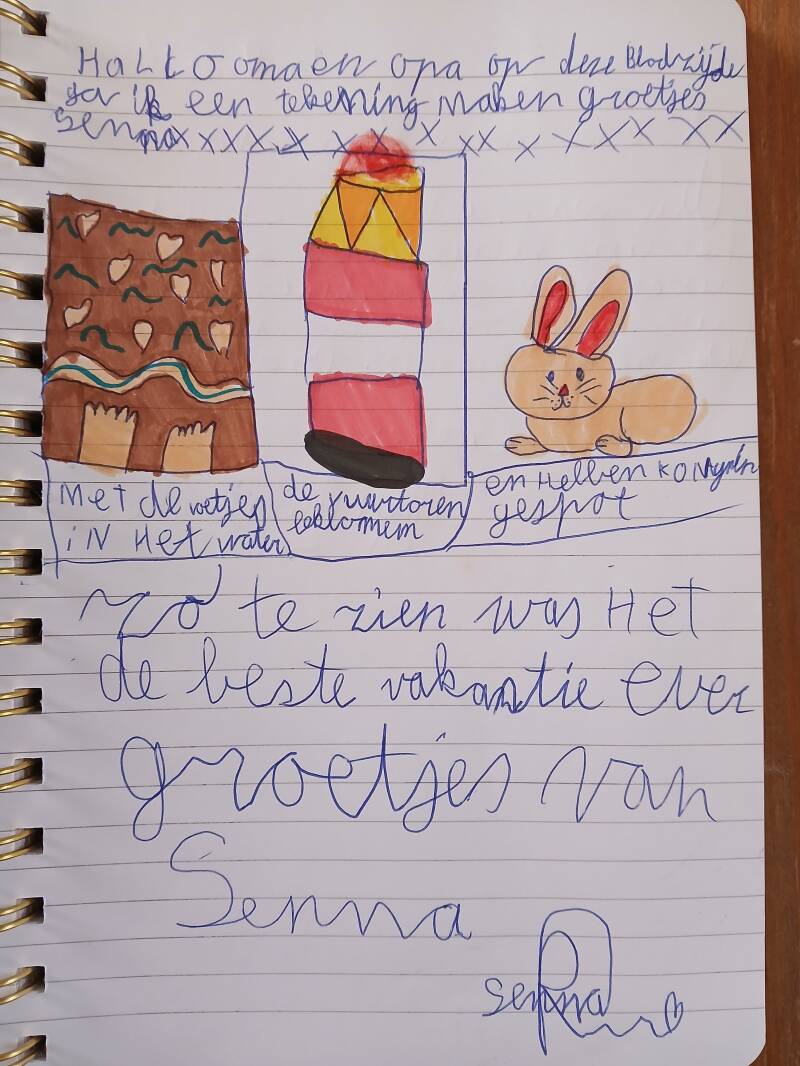 Hallo oma en opa op deze Bladzijde
ga ik een tekening maken groetjes
Senna xxxx x x x x xx x x x x xx
Met de voetjes
in Het water
de vuurtoren
beklommem
en Hebben konijnen
gespot
zo te zien was Het
de beste vakantie ever
groetjes van
Senna
senna